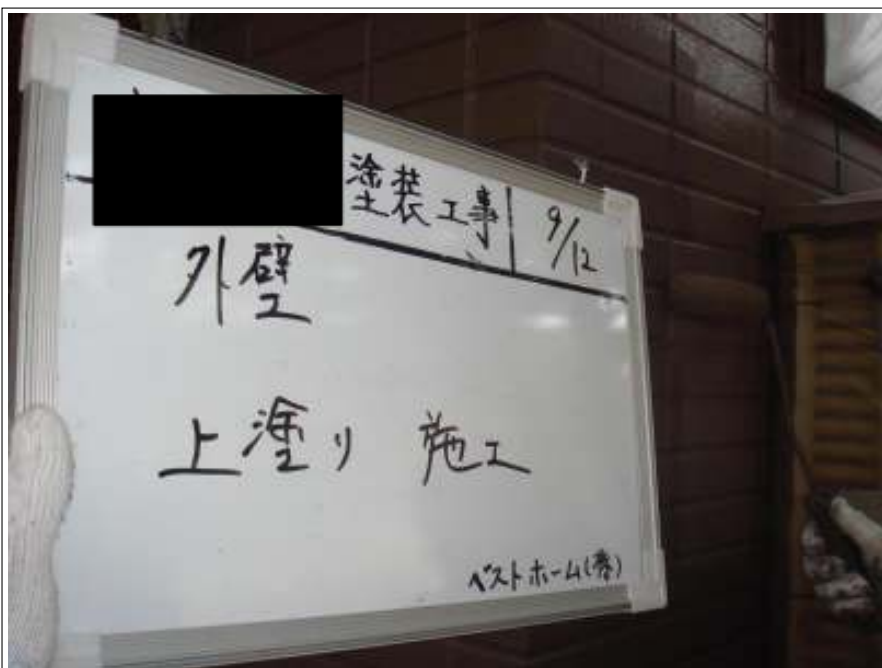 塗装工事 9/12
外壁
上塗り 施工
ベストホーム(